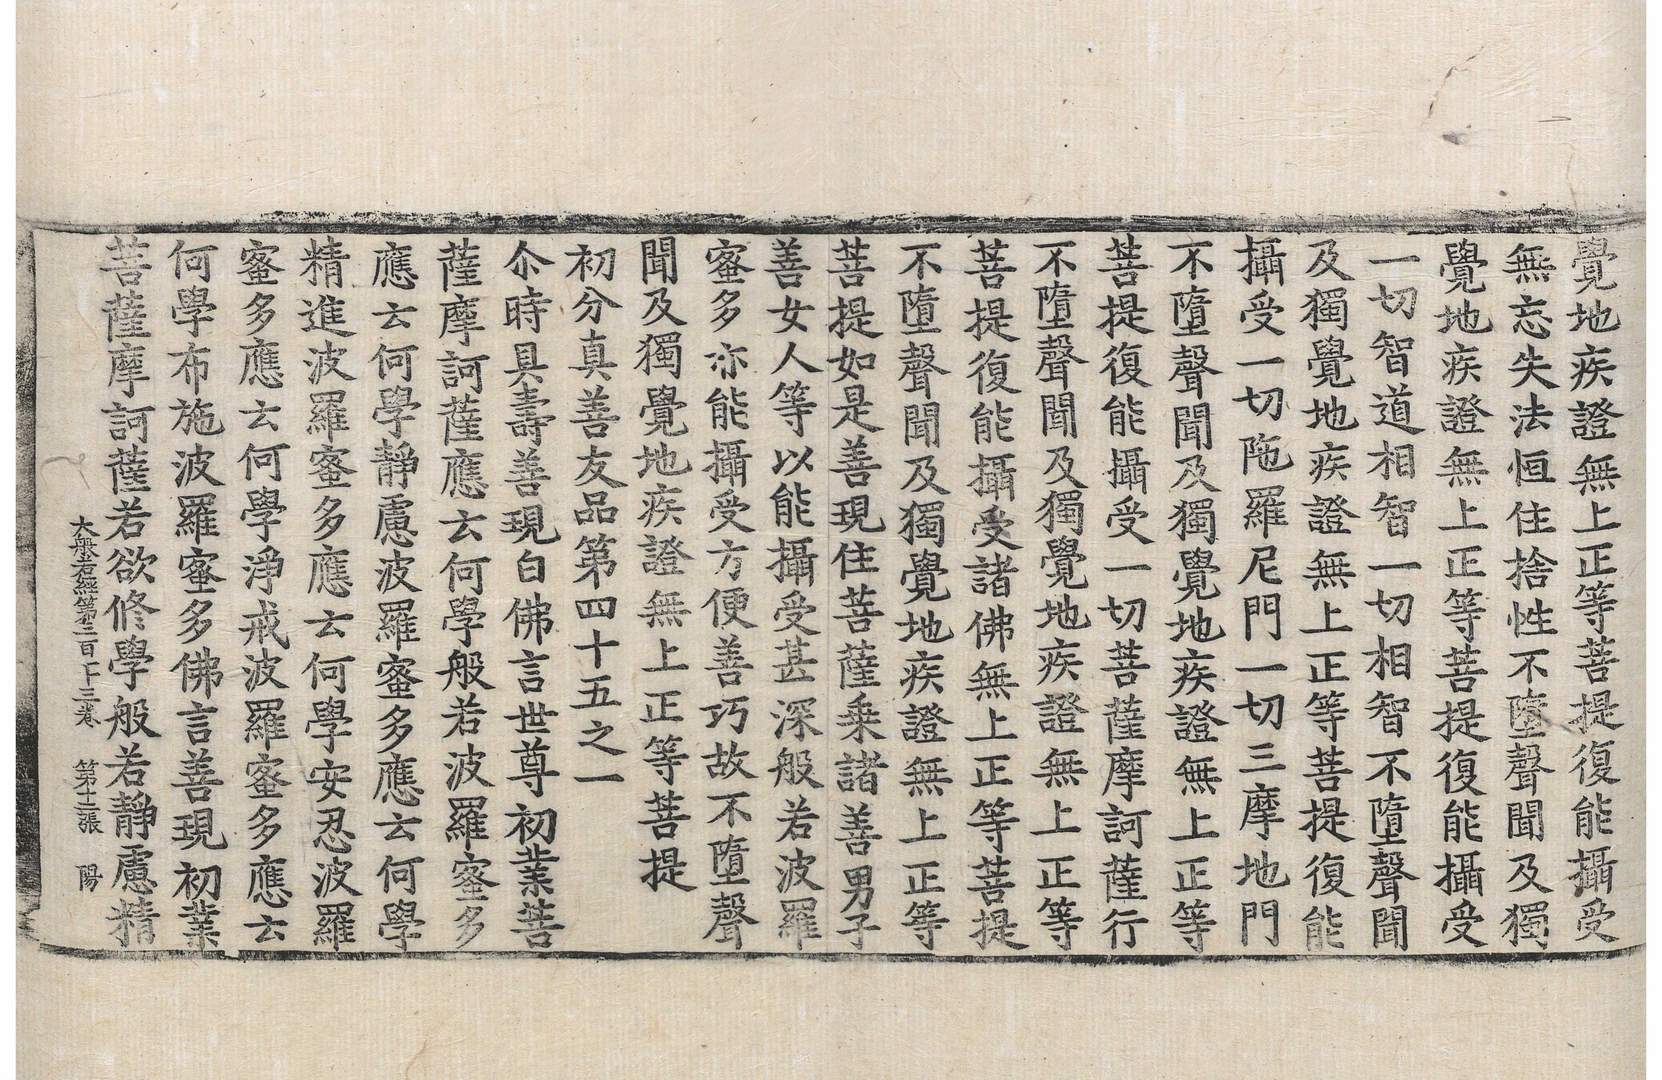 覺地疾證無上正等菩提復能攝受
無忘失法恒住捨性不墮聲聞及獨
覺地疾證無上正等菩提復能攝受
一切智道相智一切相智不墮聲聞
及獨覺地疾證無上正等菩提復能
攝受一切陁羅尼門一切三摩地門
不墮聲聞及獨覺地疾證無上正等
菩提復能攝受一切菩薩摩訶薩行
不墮聲聞及獨覺地疾證無上正等
菩提復能攝受諸佛無上正等菩提
不墮聲聞及獨覺地疾證無上正等
菩提如是善現住菩薩乘諸善男子
善女人等以能攝受甚深般若波羅
蜜多亦能攝受方便善巧故不墮聲
聞及獨覺地疾證無上正等菩提
初分真善友品第四十五之一
尒時具壽善現白佛言世尊初業菩
薩摩訶薩應云何學般若波羅蜜多
應云何學靜慮波羅蜜多應云何學
精進波羅蜜多應云何學安忍波羅
蜜多應云何學淨戒波羅蜜多應云
何學布施波羅蜜多佛言善現初業
菩薩摩訶薩若欲修學般若靜慮精
大般若經第三百十三卷 第十二張 陽